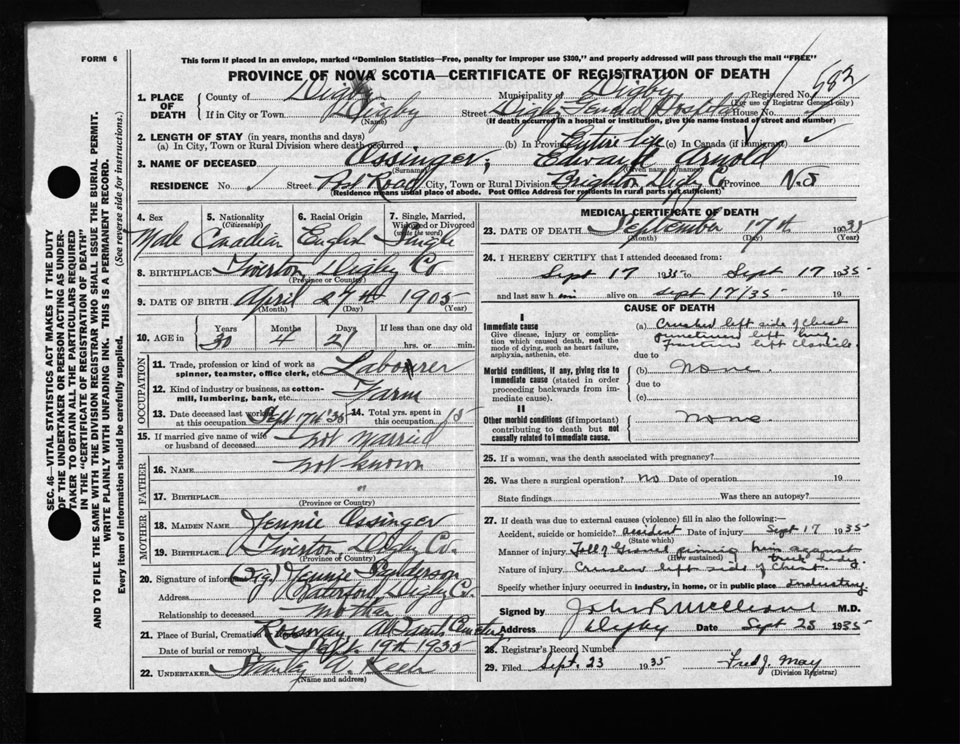 FORM 6
This form if placed in an envelope, marked "Dominion Statistics—Free, penalty for improper use $300," and properly addressed will pass through the mail "FREE"
PROVINCE OF NOVA SCOTIA—CERTIFICATE OF REGISTRATION OF DEATH
682
1. PLACE OF DEATH
County of Digby Municipality of Digby Registered No.
(For use of Registrar General only)
If in City or Town Digby Street Digby General Hospital House No.
(Name) (If death occurred in a hospital or institution, give the name instead of street and number)
2. LENGTH OF STAY (in years, months and days)
(a) In City, Town or Rural Division where death occurred (b) In Province Entire life (c) In Canada (if immigrant)
3. NAME OF DECEASED Ossinger, Edward Arnold
(Surname) (Given name or names)
RESIDENCE No. Street Post Road City, Town or Rural Division Brighton Digby Co Province N.S
(Residence means usual place of abode. Post Office Address for residents in rural parts not sufficient)
SEC. 46—VITAL STATISTICS ACT MAKES IT THE DUTY
OF THE UNDERTAKER OR PERSON ACTING AS UNDER-
TAKER TO OBTAIN ALL THE PARTICULARS REQUIRED
IN THE "CERTIFICATE OF REGISTRATION OF DEATH"
AND TO FILE THE SAME WITH THE DIVISION REGISTRAR WHO SHALL ISSUE THE BURIAL PERMIT.
WRITE PLAINLY WITH UNFADING INK. THIS IS A PERMANENT RECORD.
Every item of information should be carefully supplied. (See reverse side for instructions.)
4. Sex 5. Nationality (Citizenship) 6. Racial Origin 7. Single, Married, Widowed or Divorced (write the word)
Male Canadian English Single
8. BIRTHPLACE Tiverton Digby Co
(Province or County)
9. DATE OF BIRTH April 27th 1905
(Month) (Day) (Year)
10. AGE in Years Months Days If less than one day old
30 4 21 hrs. or min.
OCCUPATION
11. Trade, profession or kind of work as spinner, teamster, office clerk, etc. Labourer
12. Kind of industry or business, as cotton-mill, lumbering, bank, etc. Farm
13. Date deceased last worked at this occupation Sept 17th '35 14. Total yrs. spent in this occupation 15
15. If married give name of wife or husband of deceased not married
FATHER
16. Name not known
17. Birthplace "
(Province or Country)
MOTHER
18. Maiden Name Jennie Ossinger
19. Birthplace Tiverton Digby Co.
(Province or Country)
20. Signature of informant (Sg.) Jennie
Address Waterford, Digby Co.
Relationship to deceased mother
21. Place of Burial, Cremation Rossway Cemetery
Date of burial or removal Sept. 19th 1935
22. Undertaker
(Name and address)
MEDICAL CERTIFICATE OF DEATH
23. DATE OF DEATH September 17th 1935
(Month) (Day) (Year)
24. I HEREBY CERTIFY that I attended deceased from:
Sept 17 1935 to Sept 17 1935
and last saw him alive on Sept 17/35 19
CAUSE OF DEATH
I
Immediate cause
Give disease, injury or complication which caused death, not the mode of dying, such as heart failure, asphyxia, asthenia, etc.
(a) Crushed left side of chest
fracture left clavicle
due to
Morbid conditions, if any, giving rise to immediate cause (stated in order proceeding backwards from immediate cause).
(b) None
due to
(c)
II
Other morbid conditions (if important) contributing to death but not causally related to immediate cause.
None
25. If a woman, was the death associated with pregnancy?
26. Was there a surgical operation? No Date of operation 19
State findings Was there an autopsy?
27. If death was due to external causes (violence) fill in also the following:—
Accident, suicide or homicide? accident Date of injury Sept 17 1935
(State which)
Manner of injury Fall of Gravel pinning him against truck body
(How sustained)
Nature of injury Crushed left side of Chest.
Specify whether injury occurred in industry, in home, or in public place Industry
Signed by M.D.
Address Digby Date Sept 23 1935
28. Registrar's Record Number
29. Filed Sept. 23 1935 Fred J. May
(Division Registrar)